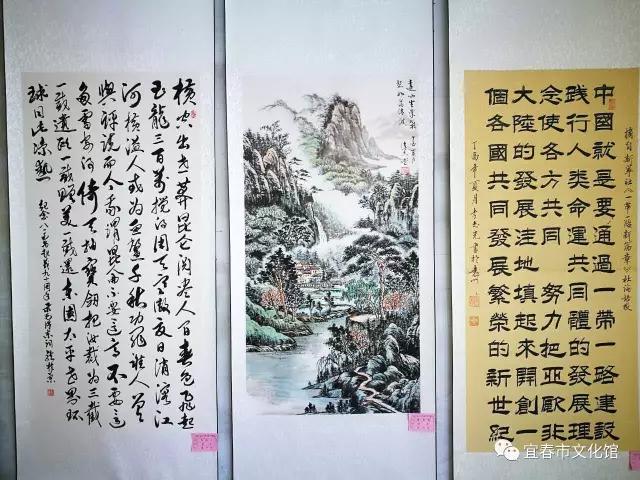 横空出世莽昆仑阅尽人间春色飞起
玉龙三百万搅得周天寒彻夏日消溶江
河横溢人或为鱼鳖千秋功罪谁人曾
与评说而今我谓昆仑不要这高不要这
多雪安得倚天抽宝剑把汝裁为三截
一截遗欧一截赠美一截还東國太平世界环
球同此凉热
中國就是要通過一帶一路建設
践行人类命運共同體的發展理
念使各方共同努力把亚歐非
大陸的發展洼地填起來開創一
個各國共同發展繁榮的新世紀
丁酉年夏月
宜春市文化馆